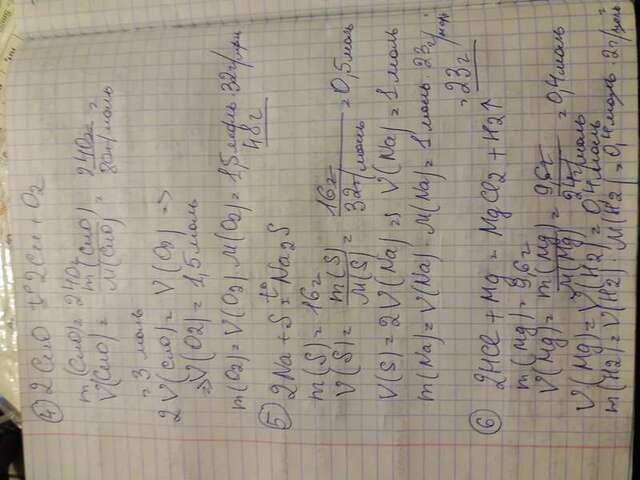 ④ 2CuO t°= 2Cu + O2
m(CuO) = 240г
V(CuO) = m(CuO)/M(CuO) = 240г/80г/моль =
= 3 моль
2V(CuO) = V(O2) =>
=> V(O2) = 1,5 моль
m(O2) = V(O2) · M(O2) = 1,5 моль · 32г/моль
48г
⑤ 2Na + S t°= Na2S
m(S) = 16г
V(S) = m(S)/M(S) = 16г/32г/моль = 0,5 моль
V(S) = 2V(Na) => V(Na) = 1 моль
m(Na) = V(Na) · M(Na) = 1 моль · 23г/моль
= 23г
⑥ 2HCl + Mg = MgCl2 + H2↑
m(Mg) = 9,6г
V(Mg) = m(Mg)/M(Mg) = 9,6г/24г/моль = 0,4 моль
V(Mg) = V(H2) = 0,4 моль
m(H2) = V(H2) · M(H2) = 0,4 моль · 2г/моль